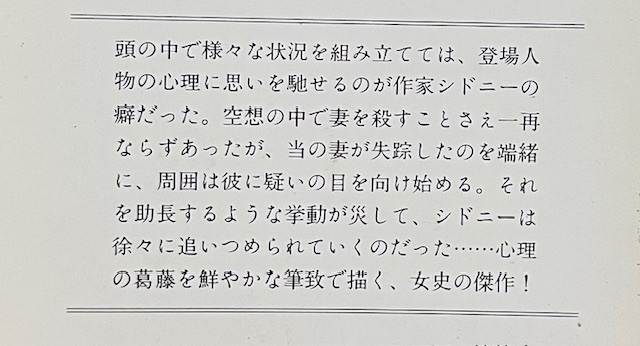 頭の中で様々な状況を組み立てては、登場人
物の心理に思いを馳せるのが作家シドニーの
癖だった。空想の中で妻を殺すことさえ一再
ならずあったが、当の妻が失踪したのを端緒
に、周囲は彼に疑いの目を向け始める。それ
を助長するような挙動が災して、シドニーは
徐々に追いつめられていくのだった……心理
の葛藤を鮮やかな筆致で描く、女史の傑作！